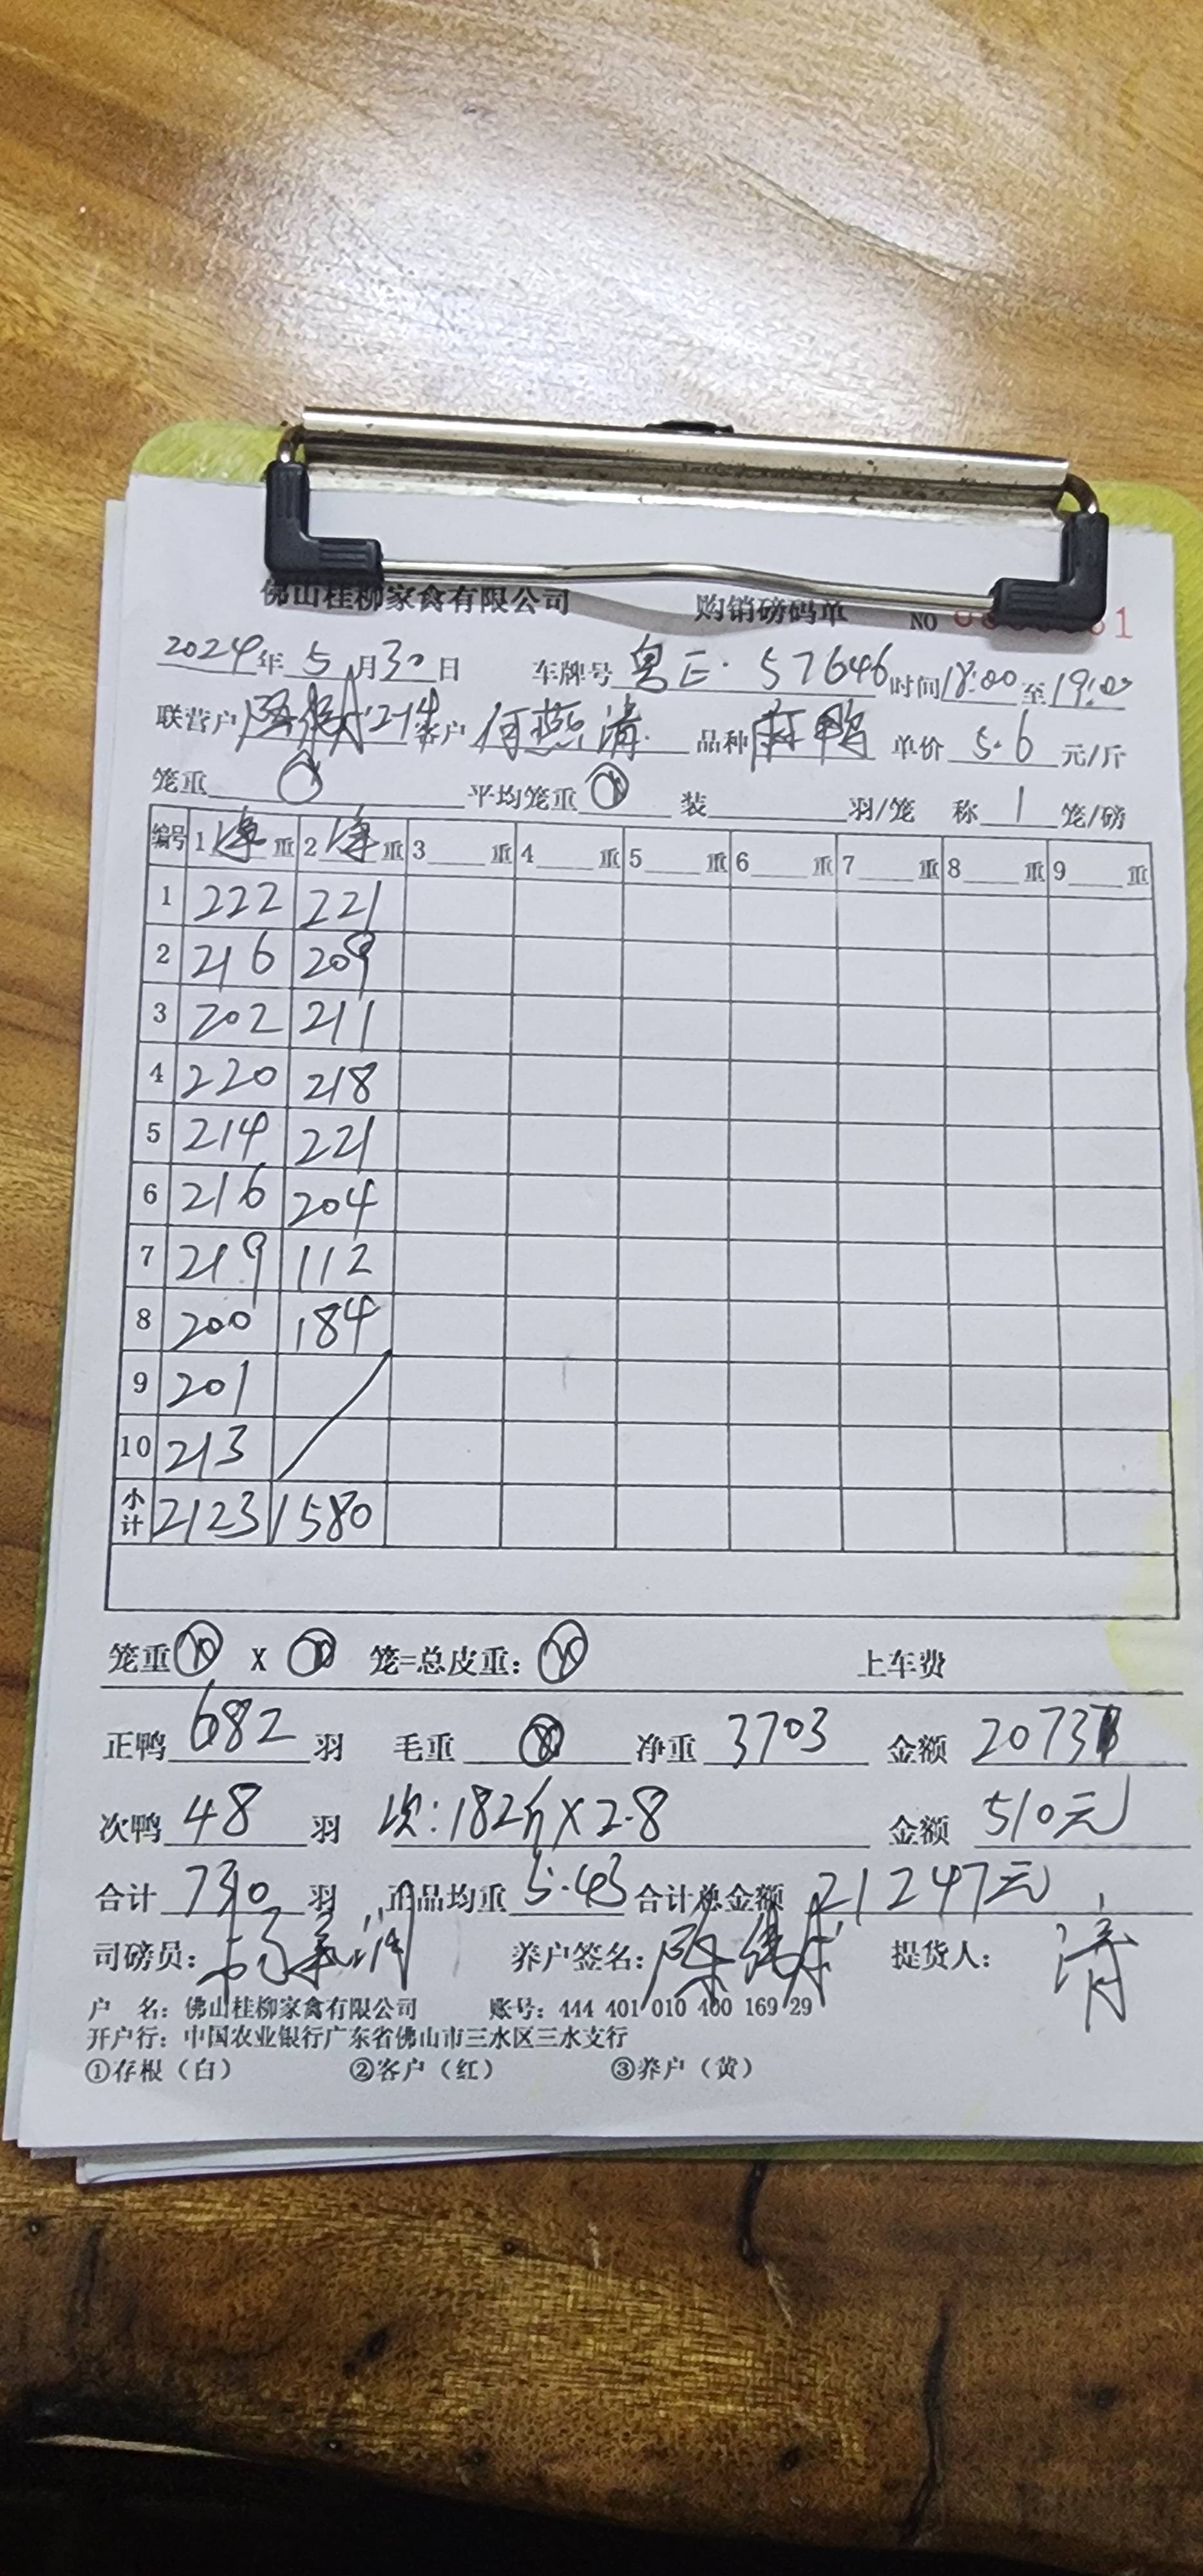 佛山桂柳家禽有限公司 购销磅码单 NO 31
2024年 5月30日 车牌号 粤E·57646 时间18:00至19:00
联营户 客户 何燕清 品种 麻鸭 单价 5.6 元/斤
笼重 平均笼重 装 羽/笼 称 1 笼/磅
编号 1 净 重 2 净 重 3 重 4 重 5 重 6 重 7 重 8 重 9 重
1 222 221
2 216 209
3 202 211
4 220 218
5 214 221
6 216 204
7 219 112
8 200 184
9 201
10 213
小计 2123 1580
笼重 X 笼=总皮重: 上车费
正鸭 682 羽 毛重 净重 3703 金额 20737
次鸭 48 羽 次:182斤×2.8 金额 510元
合计 730 羽 正品均重 5.43 合计总金额 21247元
司磅员: 养户签名: 陈 提货人: 清
户 名: 佛山桂柳家禽有限公司 账号: 444 401 010 400 169 29
开户行: 中国农业银行广东省佛山市三水区三水支行
①存根(白) ②客户(红) ③养户(黄)